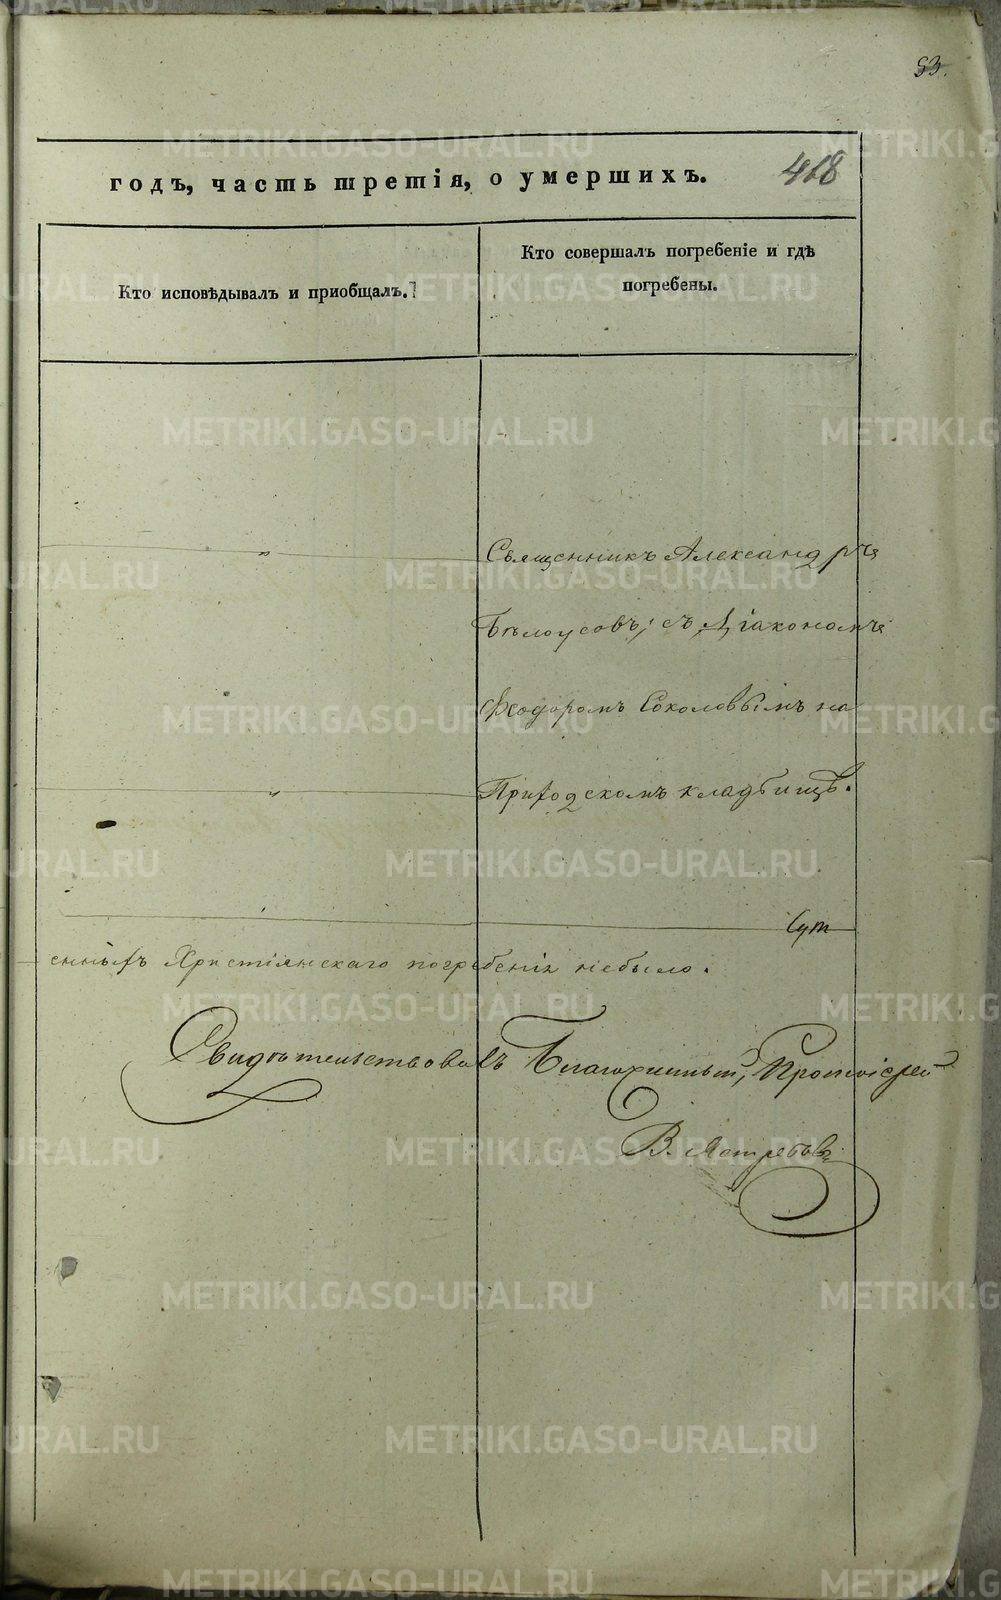 53.
годъ, часть третія, о умершихъ. 468
Кто исповѣдывалъ и приобщалъ.
Кто совершалъ погребеніе и гдѣ
погребены.
Священникъ Александръ
Бѣлоусовъ, съ Діакономъ
Феодоромъ Соколовымъ на
Приходскомъ кладбищѣ.
енныхъ Христіянскаго погребенія небыло.
Свидѣтельствовалъ Благочинный, Протоіерей
В. Ястребовъ
METRIKI.GASO-URAL.RU